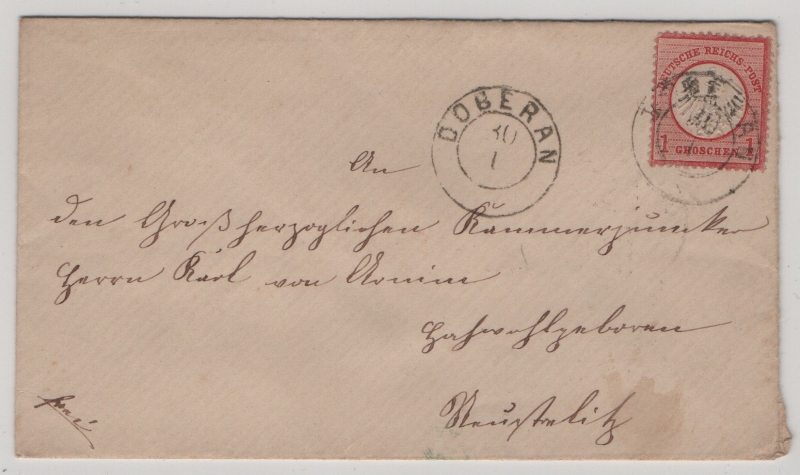 DEUTSCHE REICHS-POST
1 GROSCHEN 1
DOBERAN
30
1
An
den Großherzoglichen Kammerjunker
Herrn Karl von Arnim
Hochwohlgeboren
Neustrelitz